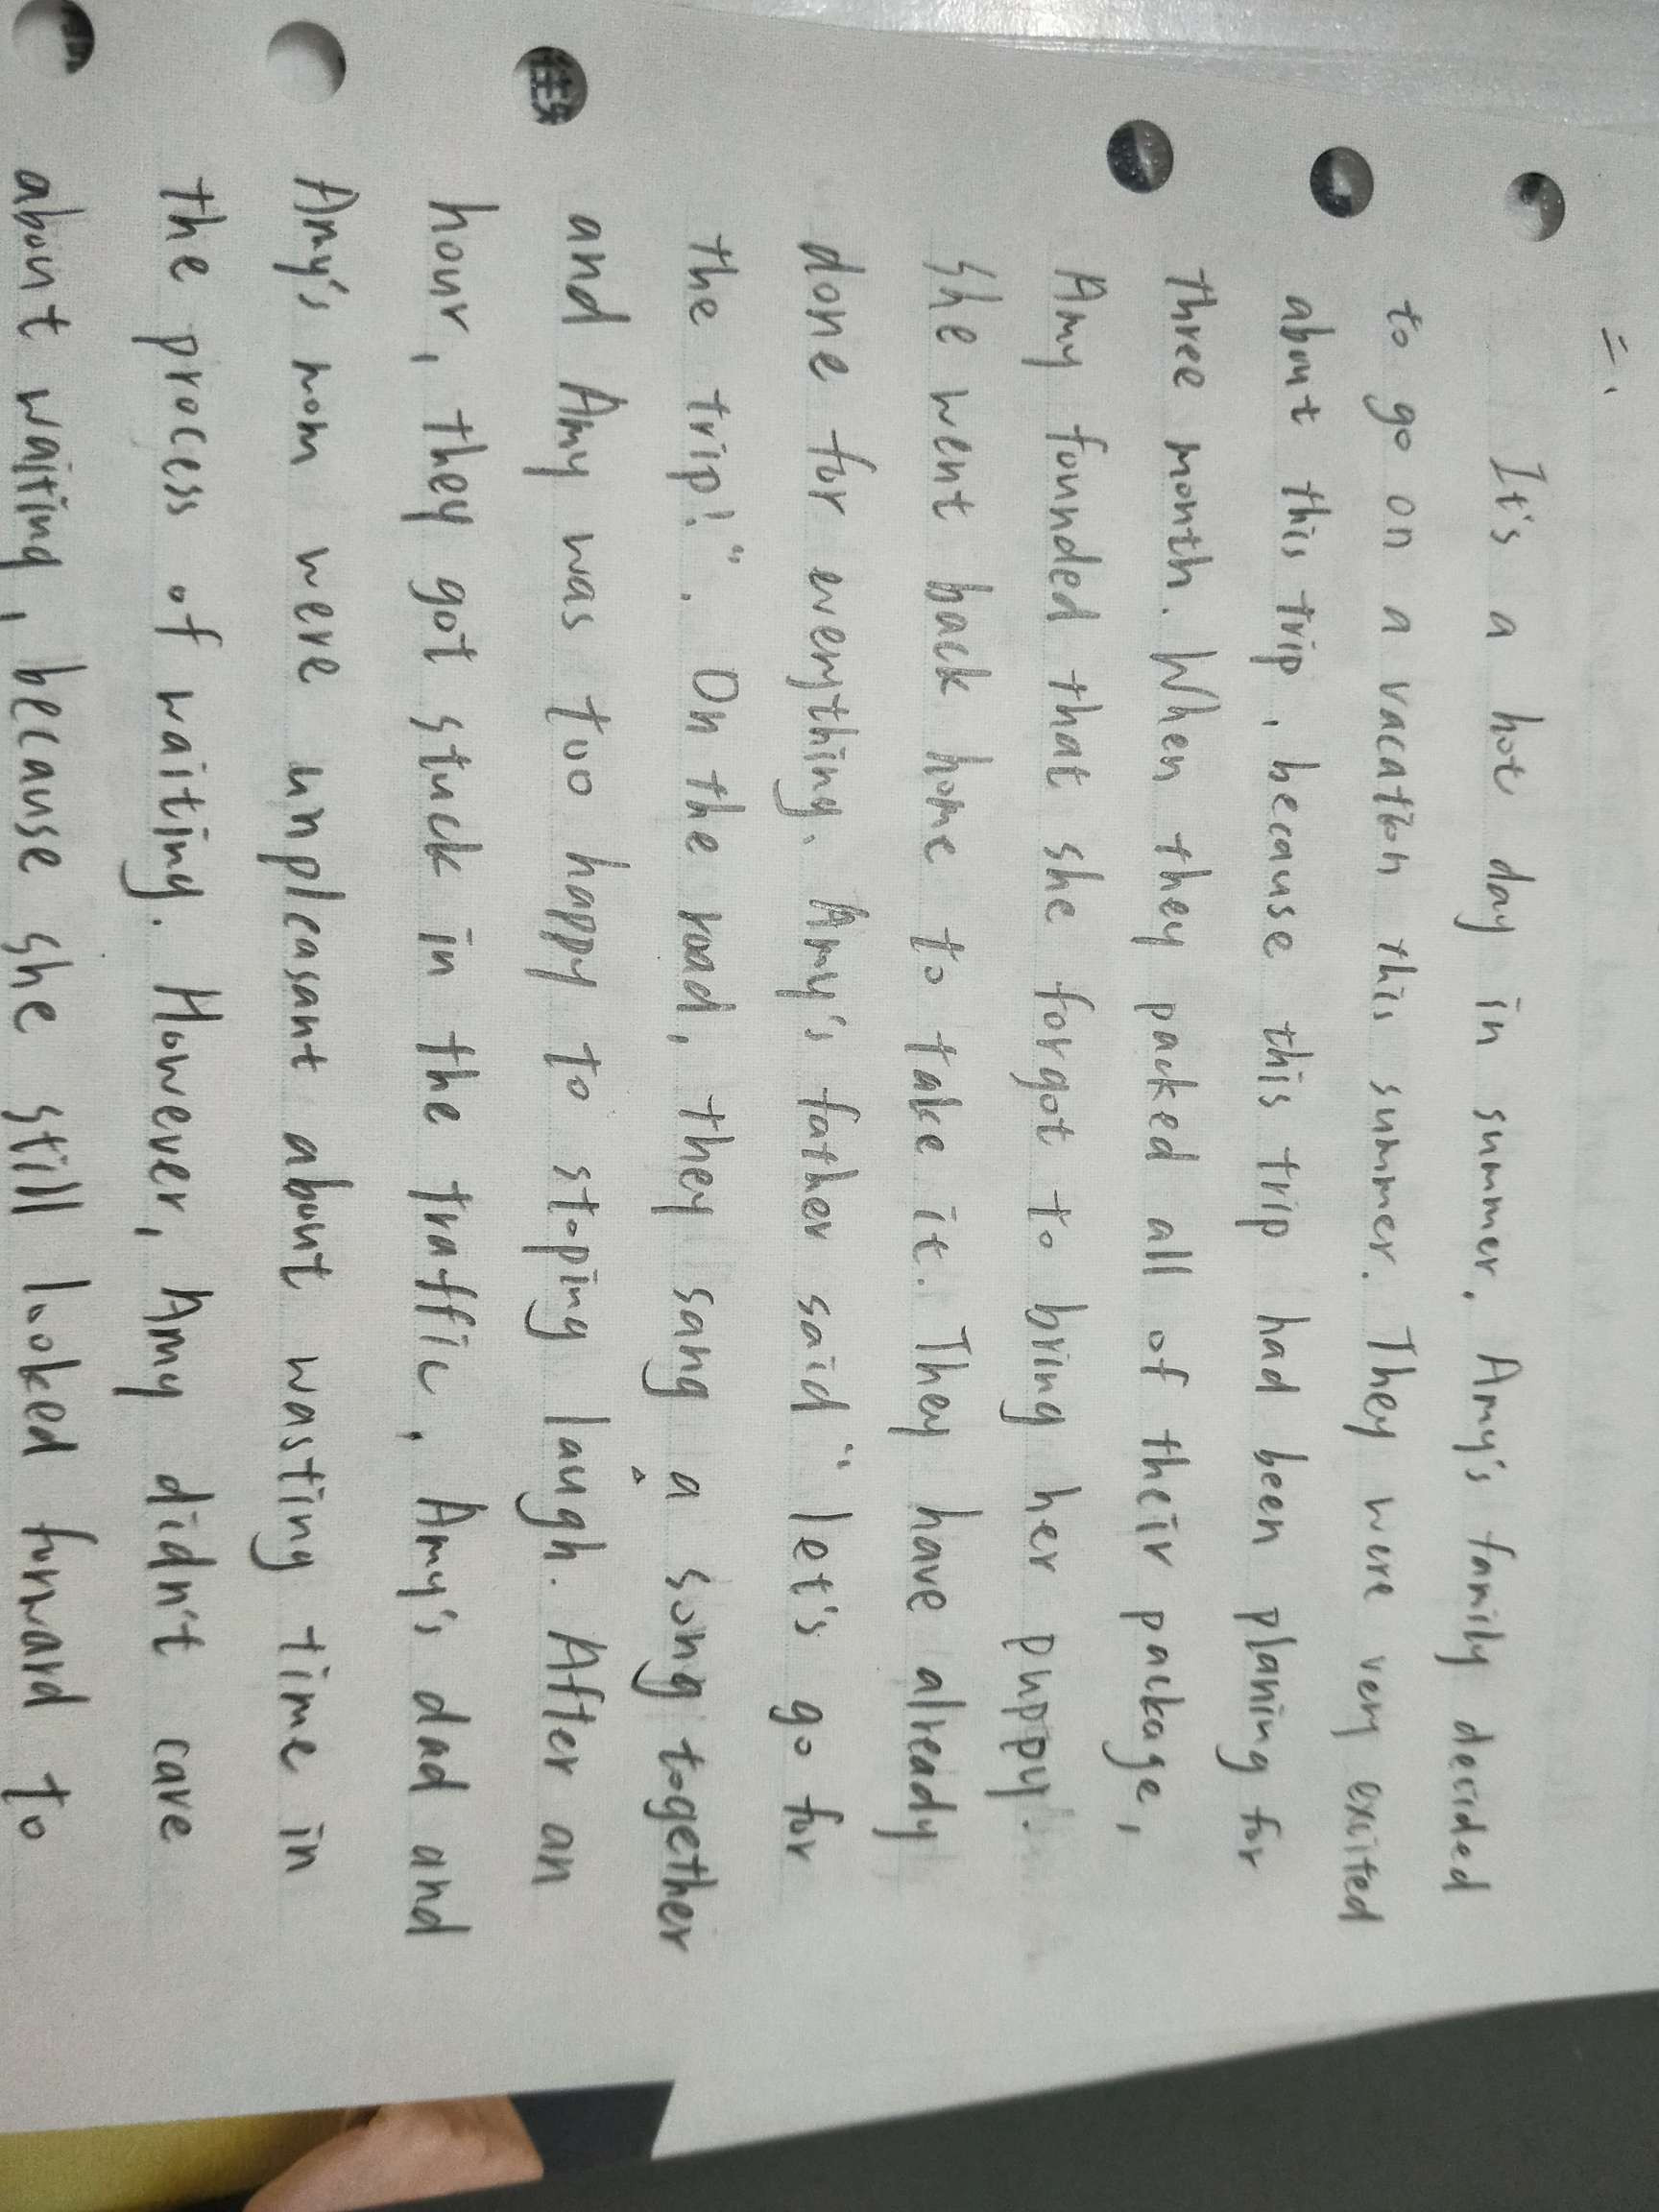 二.
It's a hot day in summer. Amy's family decided
to go on a vacation this summer. They were very excited
about this trip, because this trip had been planing for
three month. When they packed all of their package,
Amy founded that she forgot to bring her puppy.
She went back home to take it. They have already
done for everything. Amy's father said "let's go for
the trip!". On the road, they sang a song together
and Amy was too happy to stoping laugh. After an
hour, they got stuck in the traffic. Amy's dad and
Amy's mom were unpleasant about wasting time in
the process of waiting. However, Amy didn't care
about waiting, because she still looked forward to